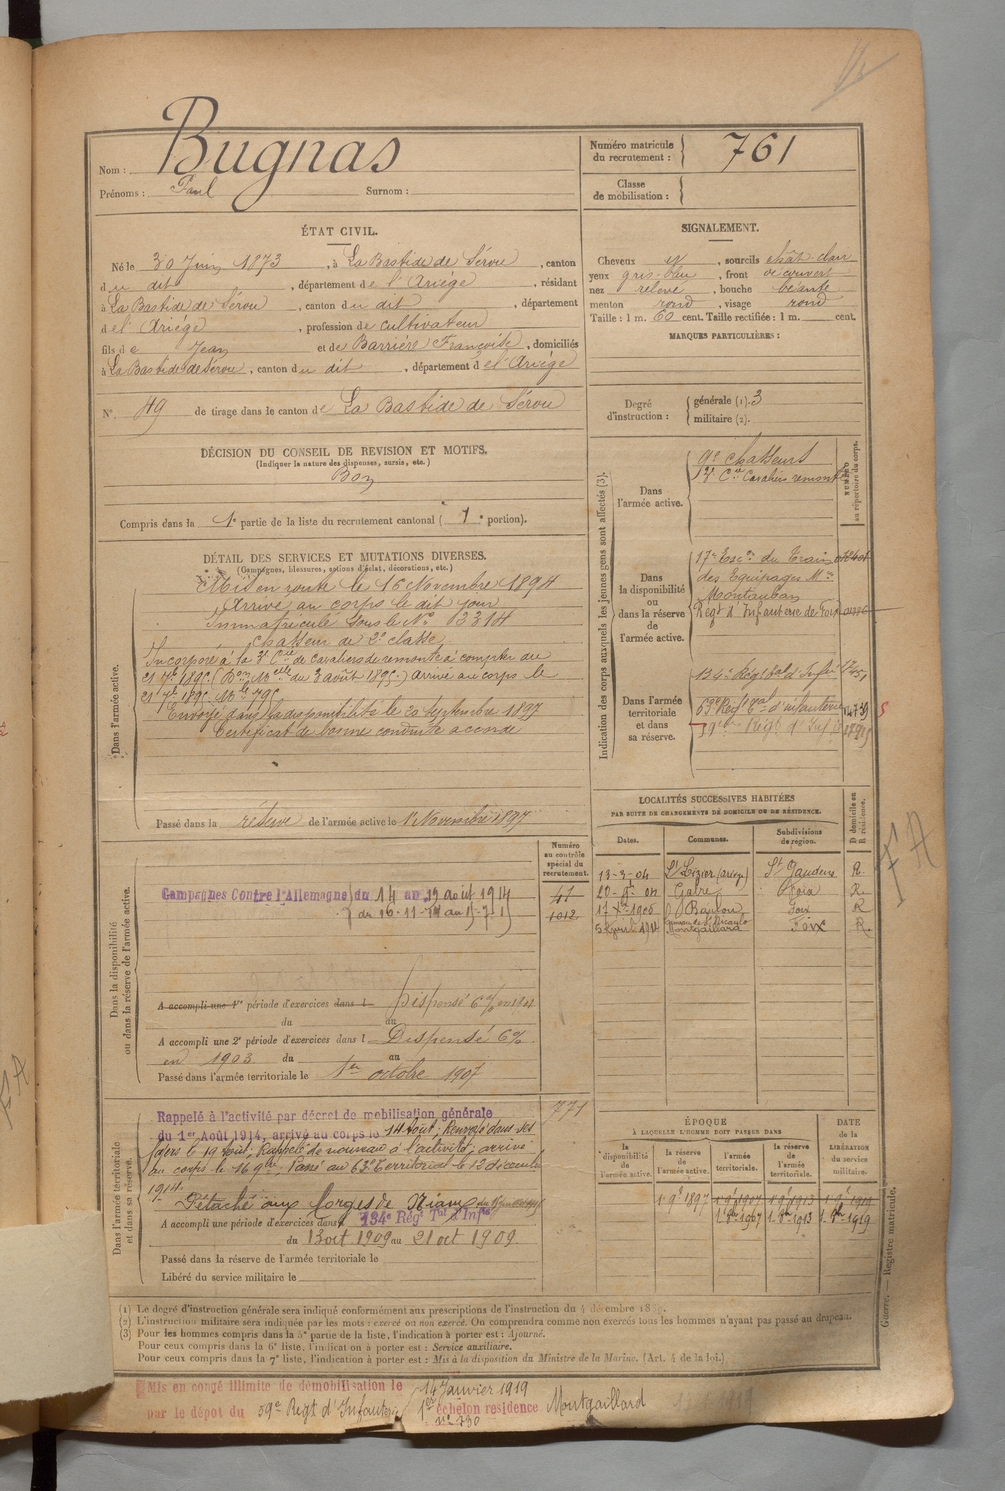 Bugnas
Nom :
Prénoms : Paul Surnom :
Numéro matricule du recrutement : 761
Classe de mobilisation :
ÉTAT CIVIL.
Né le 30 Juin 1873, à La Bastide de Sérou, canton
du dit, département de l'Ariège, résidant
à La Bastide de Sérou, canton du dit, département
de l'Ariège, profession de cultivateur
fils de Jean et de Barrière Françoise, domiciliés
à La Bastide de Sérou, canton du dit, département de l'Ariège
N° 49 de tirage dans le canton de La Bastide de Sérou
SIGNALEMENT.
Cheveux , sourcils chât. clair
yeux gris-bleu, front découvert
nez relevé, bouche béante
menton rond, visage rond
Taille : 1 m. 60 cent. Taille rectifiée : 1 m. cent.
MARQUES PARTICULIÈRES :
Degré d'instruction : générale (1). 3
militaire (2).
DÉCISION DU CONSEIL DE REVISION ET MOTIFS.
(Indiquer la nature des dispenses, sursis, etc.)
Bon
Compris dans la 1e partie de la liste du recrutement cantonal ( 1e portion).
DÉTAIL DES SERVICES ET MUTATIONS DIVERSES.
(Campagnes, blessures, actions d'éclat, décorations, etc.)
Dans l'armée active.
Mis en route le 16 Novembre 1894
Arrivé au corps le dit jour
Immatriculé sous le N° 3314
Chasseur de 2e classe
Incorporé à la 3e Cie de Cavaliers de remonte à compter du
21 7bre 1895 ( du 3 août 1895) arrivé au corps le
21 7bre 1895. Mle 795
Envoyé dans la disponibilité le 20 Septembre 1897
Certificat de bonne conduite accordé
Passé dans la réserve de l'armée active le 1 Novembre 1897
Indication des corps auxquels les jeunes gens sont affectés (3).
NUMÉRO au répertoire du corps.
Dans l'armée active.
9e Chasseurs
3e Cie Cavaliers remonte
Dans la disponibilité ou dans la réserve de l'armée active.
17e Escon du Train
des Equipages Mres
Montauban
Régt d'Infanterie de Foix
Dans l'armée territoriale et dans sa réserve.
134e Régt tal d'Infie
63e Régt tal d'infanterie
Régt d'Inf
Dans la disponibilité ou dans la réserve de l'armée active.
Numéro au contrôle spécial du recrutement.
41
1012
Campagnes Contre l'Allemagne du 14 au 19 août 1914
A accompli une 1re période d'exercices dans l Dispensé
du au
A accompli une 2e période d'exercices dans l Dispensé 6%
en 1903 du au
Passé dans l'armée territoriale le 1er octobre 1907
LOCALITÉS SUCCESSIVES HABITÉES
PAR SUITE DE CHANGEMENTS DE DOMICILE OU DE RÉSIDENCE.
Dates. Communes. Subdivisions de région. D domicile ou R résidence.
13-3-04 St Lizier (Ariège) St Gaudens R.
Gabre Foix R.
Foix R
Montgaillard Foix R.
Dans l'armée territoriale et dans sa réserve.
771
Rappelé à l'activité par décret de mobilisation générale
du 1er Août 1914, arrivé au corps le 14 Août; Renvoyé dans ses
foyers le 19 Août; Rappelé de nouveau à l'activité; arrivé
au corps le 16 9bre. Passé au 63e Territorial le 12 décembre
1914.
Détaché aux forges de
A accompli une période d'exercices dans 134e Régt Tal d'Infie
du 13 oct 1909 au 21 oct 1909
Passé dans la réserve de l'armée territoriale le
Libéré du service militaire le
ÉPOQUE À LAQUELLE L'HOMME DOIT PASSER DANS
la disponibilité de l'armée active. la réserve de l'armée active. l'armée territoriale. la réserve de l'armée territoriale.
DATE de la LIBÉRATION du service militaire.
1 9bre 1897 1 9bre 1907 1 9bre 1913 1 9bre 1919
1. 8bre 1907 1. 8bre 1913 1. 8bre 1919
Guerre. — Registre matricule.
F A
(1) Le degré d'instruction générale sera indiqué conformément aux prescriptions de l'instruction du 4 décembre
(2) L'instruction militaire sera indiquée par les mots : exercé ou non exercé. On comprendra comme non exercés tous les hommes n'ayant pas passé au drapeau.
(3) Pour les hommes compris dans la 5e partie de la liste, l'indication à porter est : Ajourné.
Pour ceux compris dans la 6e liste, l'indication à porter est : Service auxiliaire.
Pour ceux compris dans la 7e liste, l'indication à porter est : Mis à la disposition du Ministre de la Marine. (Art. 4 de la loi.)
Mis en congé illimité de démobilisation le 14 Janvier 1919
par le dépôt du 59e Régt d'Infanterie 1er échelon résidence Montgaillard
n° 730